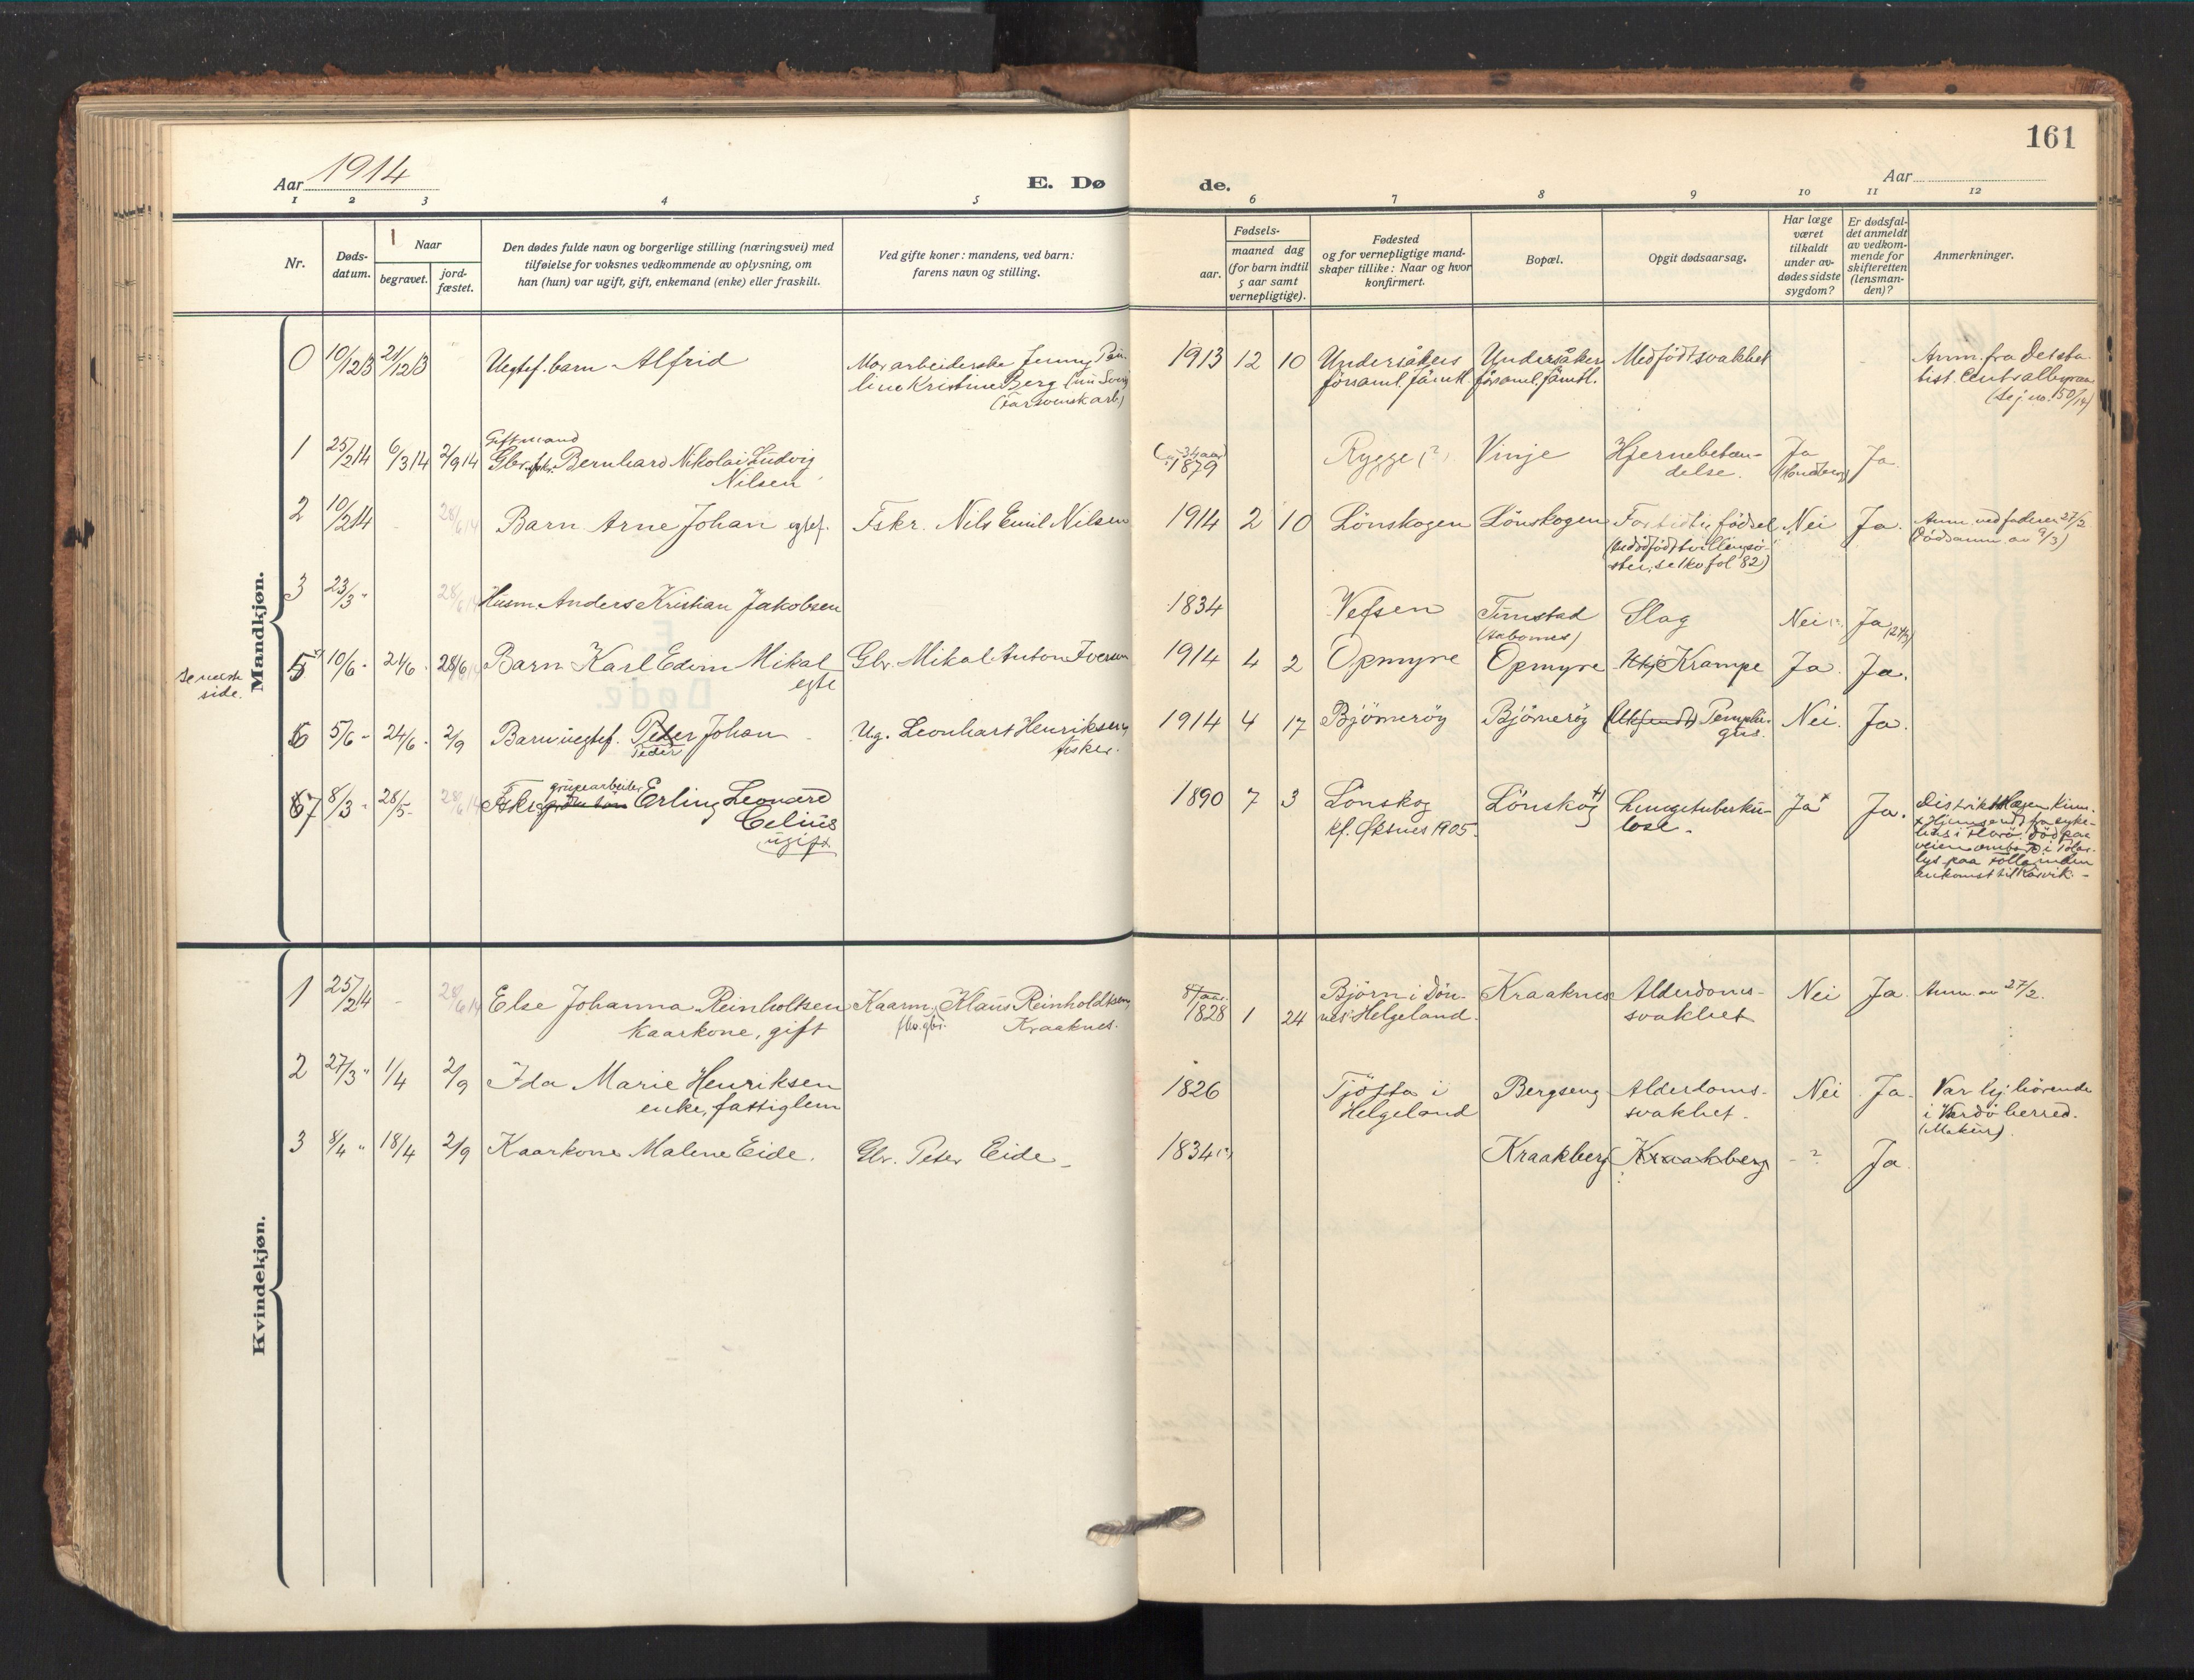 161
Aar 1914
E. Dø
de.
Aar
1 2 3 4 5
6 7 8 9 10 11 12
Nr.
Døds-
datum.
Naar
begravet.
jord-
fæstet.
Den dødes fulde navn og borgerlige stilling (næringsvei) med
tilføielse for voksnes vedkommende av oplysning, om
han (hun) var ugift, gift, enkemand (enke) eller fraskilt.
Ved gifte koner: mandens, ved barn:
farens navn og stilling.
Fødsels-
aar.
maaned dag
(for barn indtil
5 aar samt
vernepligtige).
Fødested
og for vernepligtige mand-
skaper tillike: Naar og hvor
konfirmert.
Bopæl.
Opgit dødsaarsag.
Har læge
været
tilkaldt
under av-
dødes sidste
sygdom?
Er dødsfal-
det anmeldt
av vedkom-
mende for
skifteretten
(lensman-
den)?
Anmerkninger.
Mandkjøn.
0 10/12 13 21/12 13 Uegtef. barn Alfrid
Mor arbeiderske Jenny Pau-
line Kristine Berg
(Far svensk arb)
1913 12 10 Undersåkers
församl. Jämtl.
Undersåker
församl. Jämtl.
Medfödt svakhet
Anm. fra Det sta-
tist. Centralbyraa
(se j no. 150/14)
Gift mand
1 25/2 14 6/3 14 2/9 14 Gbr. fskr. Bernhard Nikolai Ludvig
Nilsen
(ca 34 aar)
1879 Rygge (?) Vinje Hjernebetæn-
delse. Ja Ja.
2 10/2 14 - 28/6 14 Barn Arne Johan egtef. Fskr. Nils Emil Nilsen
1914 2 10 Lönskogen Lönskogen For tidlig födsel Nei Ja. Anm. ved faderen 27/2
(Dödsanm. av 9/3)
(se dödfödt tvillingsö-
ster, se fol 82)
3 23/3 " 28/6 14 Husm. Anders Kristian Jakobsen
1834 Vefsen Finnstad Slag Nei Ja
se neste
side.
5 10/6 - 21/6 - 28/6 14 Barn Karl Edvin Mikal
egte
Gbr. Mikal Anton Iversen
1914 4 2 Opmyre Opmyre Krampe Ja. Ja.
6 5/6 - 24/6 - 2/9 Barn uegtef. Peter Johan
Peder
Ug. Leonhart Henriksen
fisker.
1914 4 17 Björneröy Björneröy (Ukjendt) Pemphi-
gus. Nei. Ja.
7 8/3 - 28/5 - 28/6 14 Fskr. grubearbeider Erling Leonard
Celius
ugift
1890 7 3 Lönskog
kf. Øksnes 1905.
Lönskog +) Lungetuberku-
lose. Ja + Ja.
Distriktslægen
+ Hjemsendt fra syke-
hus i . Död paa
veien ombord i Polar-
lys paa Folla inden
ankomst til
Kvindekjøn.
1 25/2 14 - 28/6 14 Else Johanna Reinholtsen
kaarkone, gift
Kaarm. Klaus Reinholdtsen,
Kraaknes.
1828 1 24 Björn i Dön-
nes Helgeland.
Kraaknes Alderdoms-
svakhet Nei Ja. Anm. av 27/2.
2 27/3 " 1/4 2/9 Ida Marie Henriksen
enke, fattiglem
1826 Tjötta i
Helgeland
Bergseng Alderdoms-
svakhet. Nei Ja. Var hj. hörende
i herred.
3 8/4 " 18/4 2/9 Kaarkone Malene Eide. Gbr. Peter Eide -
1834 (?) Kraakberg Kraakberg - ? Ja